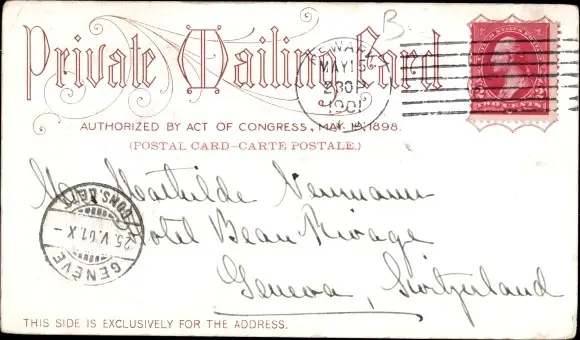 B
Private Mailing Card
NEWARK
MAY 15
2 30 P
1901
UNITED STATES
2 2
TWO CENTS
AUTHORIZED BY ACT OF CONGRESS, MAY 19, 1898.
(POSTAL CARD—CARTE POSTALE.)
Mathilde Neumann
Hotel Beau Rivage
Geneva, Switzerland
25.V.01.X –
GENÈVE
THIS SIDE IS EXCLUSIVELY FOR THE ADDRESS.